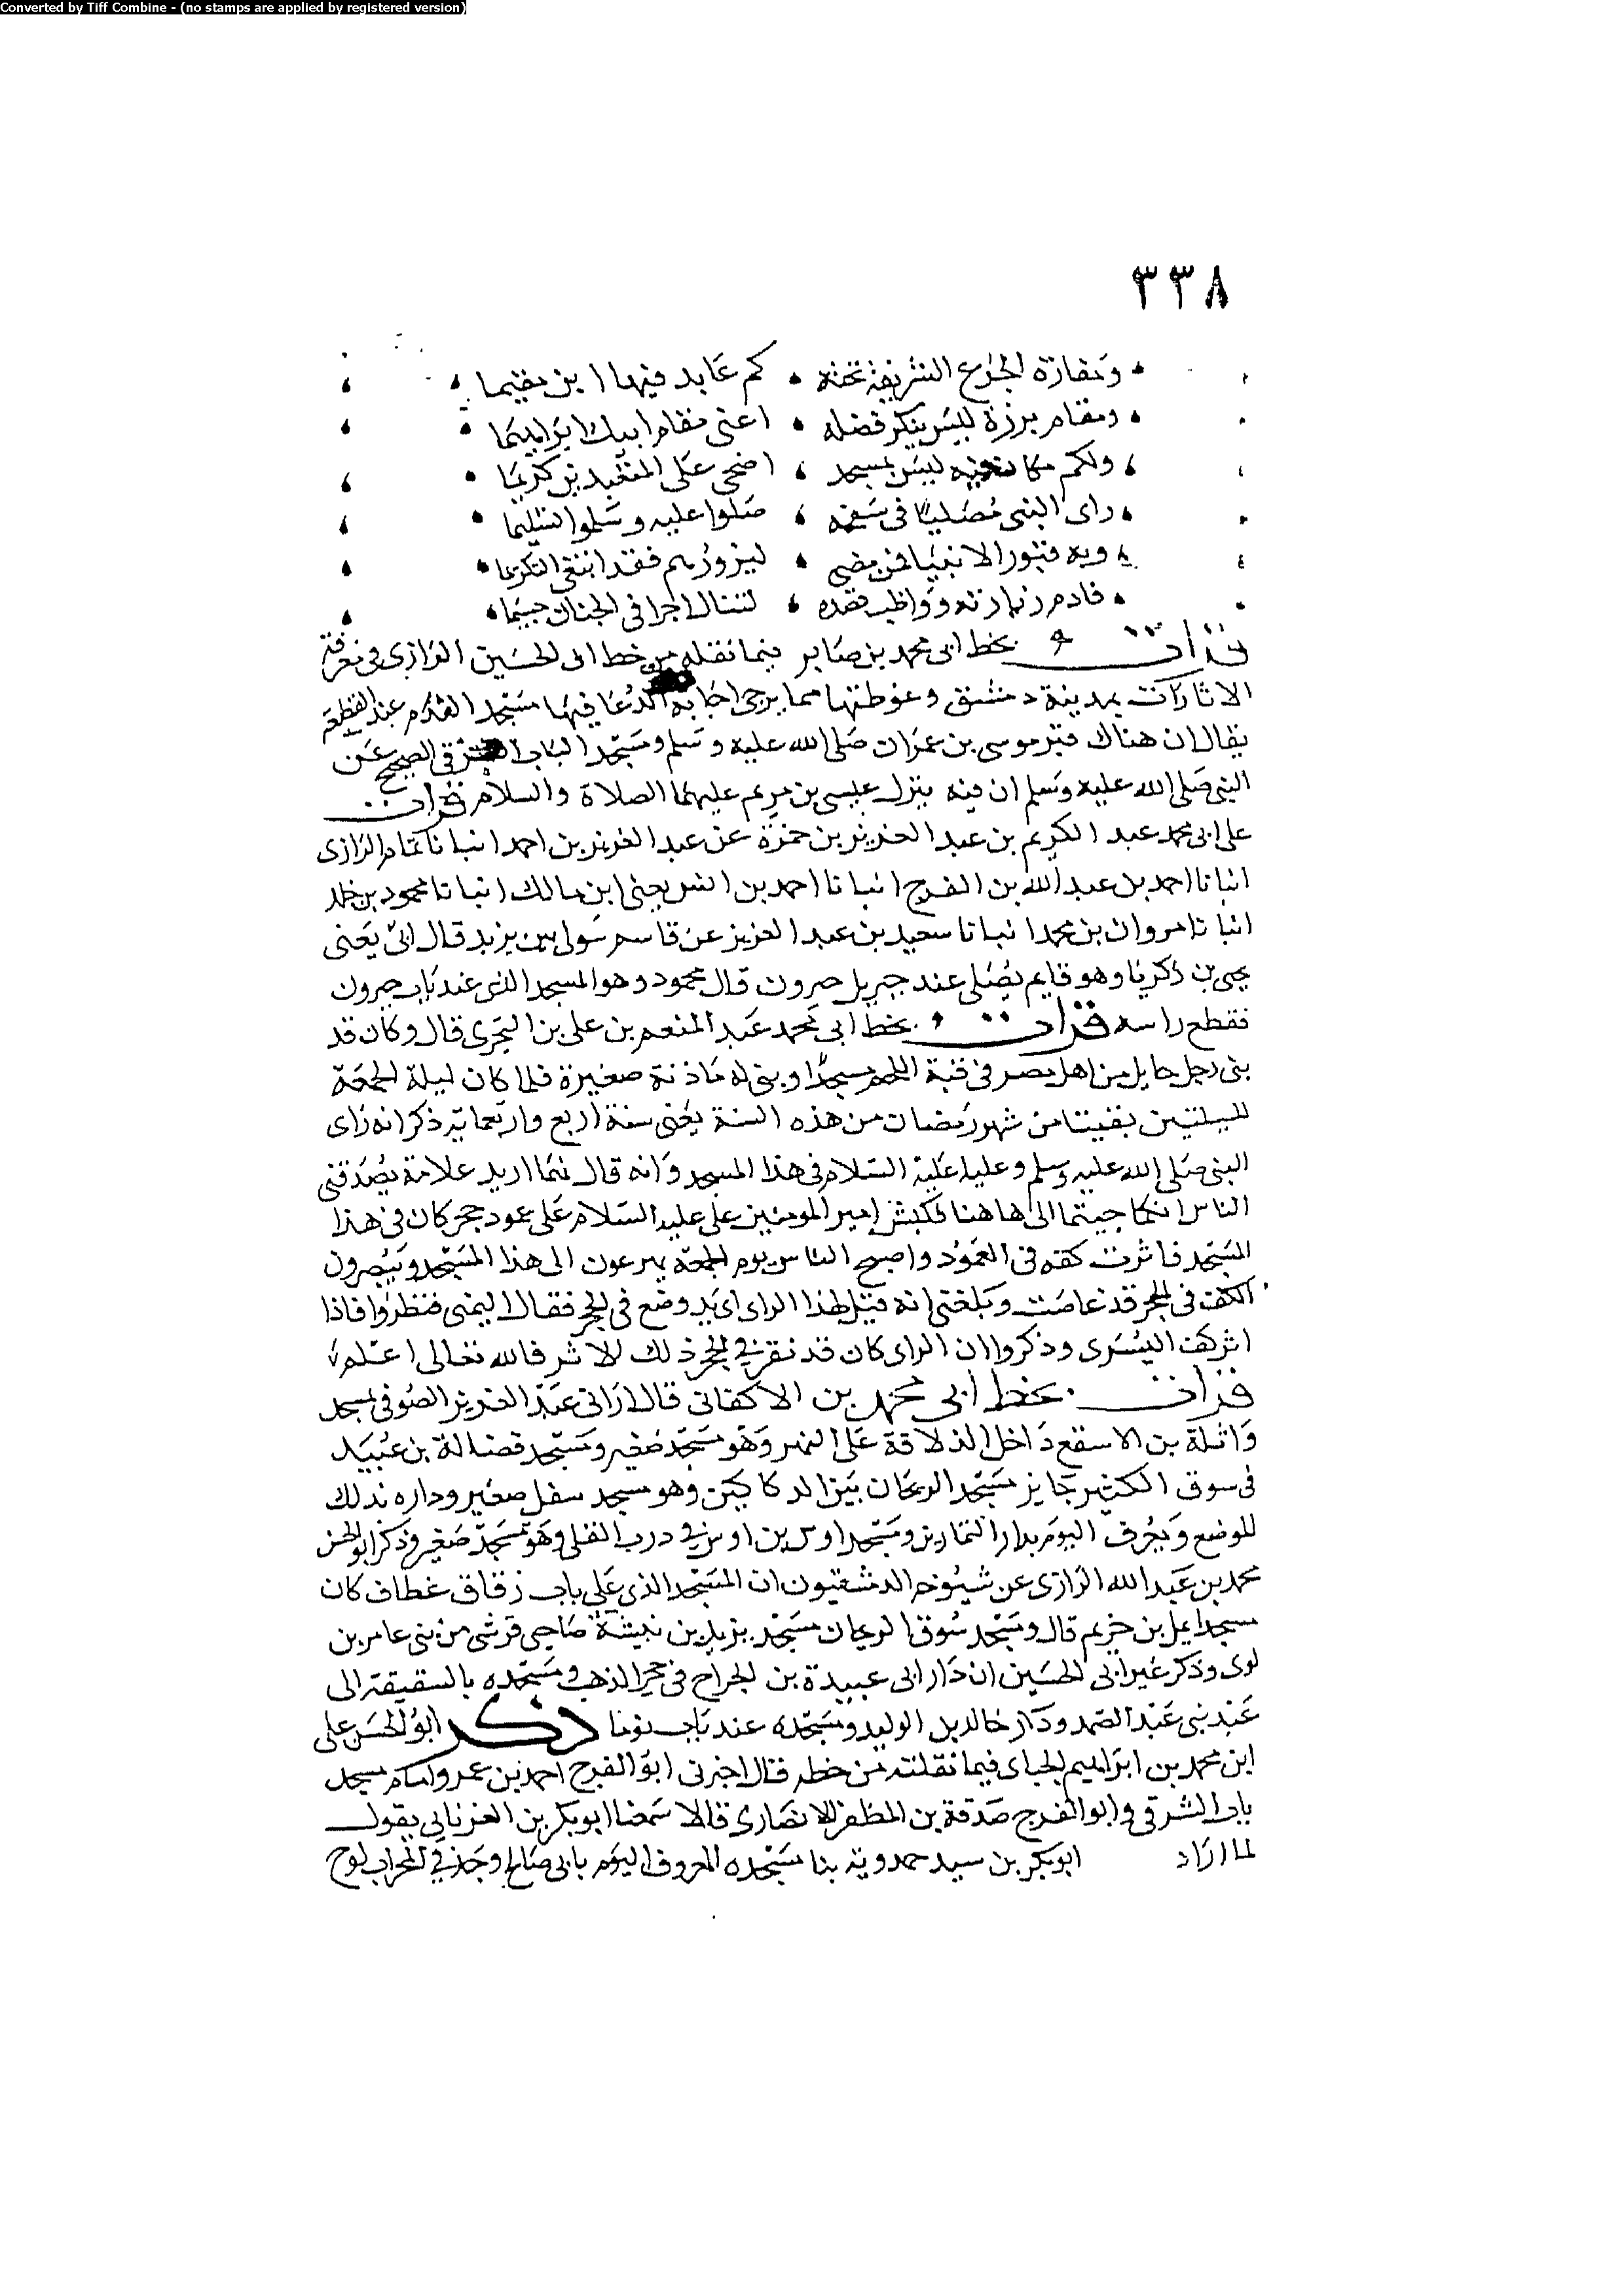 Converted by Tiff Combine - (no stamps are applied by registered version)
٣٣٨
ومغارة الجوع الشريفة تحته كم عابد فيها ابن مقيما
ومقام برزة ليس ينكر فضله اعنى مقام ابيك ابراهيما
ولكم مكان ليس بمسجد اضحى على المتعبدين كريما
راى النبى مصليا فى سفحه صلوا عليه وسلموا تسليما
وبه قبور الانبيا فمن مضى ليزورهم فقد ابتغى التكريما
فادم زيارته وواظب قصده لتنال اجرا فى الجنان جسيما
قرات بخط ابى محمد بن صابر فيما نقله من خط ابى الحسين الرازى فى معرفة
الاثارات بمدينة دمشق وغوطتها مما يرجى اجابة الدعا فيها مسجد القدم عند القطيعة
يقال ان هناك قبر موسى بن عمران صلى الله عليه وسلم ومسجد الباب الشرقى الصحيح عن
النبى صلى الله عليه وسلم ان فيه ينزل عيسى بن مريم عليهما الصلاة والسلام قرات
على ابى محمد عبد الكريم بن عبد العزيز بن حمزة عن عبد العزيز بن احمد انبانا تمام الرازى
انبانا احمد بن عبد الله بن الفرج انبانا احمد بن انس يعنى ابن مالك انبانا محمود بن خلد
انبانا مروان بن محمد انبانا سعيد بن عبد العزيز عن قاسم مولى بين يزيد قال اتى يعنى
يحيى بن زكريا وهو قايم يصلى عند جيرون قال محمود وهو المسجد الذى عند باب جيرون
فقطع راسه قرات بخط ابى محمد عبد المنعم بن على بن النحوى قال وكان قد
بنى رجل حايك من اهل مصر فى قبة اللحم مسجدا وبنى له ماذنة صغيرة فلما كان ليلة الجمعة
لليلتين بقيتا من شهر رمضان من هذه السنة يعنى سنة اربع واربعماية ذكر انه راى
النبى صلى الله عليه وسلم وعليا عليه السلام فى هذا المسجد وانه قال لهما اريد علامة يصدقنى
الناس انكما جيتما الى هاهنا فكبش امير المومنين على عليه السلام على عمود حجر كان فى هذا
المسجد فاثرت كفه فى العمود واصبح الناس يوم الجمعة يهرعون الى هذا المسجد ويبصرون
الكف فى الحجر قد غاصت وبلغنى انه قيل لهذا الراى اى يد وضع فى الحجر فقال اليمنى فنظروا فاذا
اثر كف اليسرى وذكروا ان الراى كان قد نقر فى الحجر ذلك الاثر فالله تعالى اعلم
قرات بخط ابى محمد بن الاكفانى قال ارانى عبد العزيز الصوفى مسجد
واثلة بن الاسقع داخل الزلاقة على النهر وهو مسجد صغير ومسجد فضالة بن عبيد
فى سوق الكثير جايز مسجد الريحان بين الدكاكين وهو مسجد سفل صغير وداره بذلك
الموضع ويعرف اليوم بدار التمارين ومسجد اوس بن اوس فى درب القلى وهو مسجد صغير وذكر ابو الحسن
محمد بن عبد الله الرازى عن شيوخه الدمشقيون ان المسجد الذى على باب زقاق عطاف كان
مسجد ايمن بن خزيم قال ومسجد سوق الريحان مسجد يزيد بن نبيشة صاحى قرشى من بنى عامر بن
لوى وذكر غير ابى الحسين ان دار ابى عبيدة بن الجراح فى حجر الذهب ومسجده بالسقيقة الى
عند بنى عبد الصمد ودار خالد بن الوليد ومسجده عند باب توما ذكر ابو الحسن على
ابن محمد بن ابراهيم الحياى فيما نقلته من خطه قال اخبرنى ابو الفرج احمد بن عمرو امام مسجد
باب الشرقى وابو الفرج صدقة بن المظفر الانصارى قالا سمعنا ابو بكر بن العزنابى يقول
لما اراد ابو بكر بن سيد حمدوية بنا مسجده المعروف اليوم بابى صالح وجد فى المحراب لوح